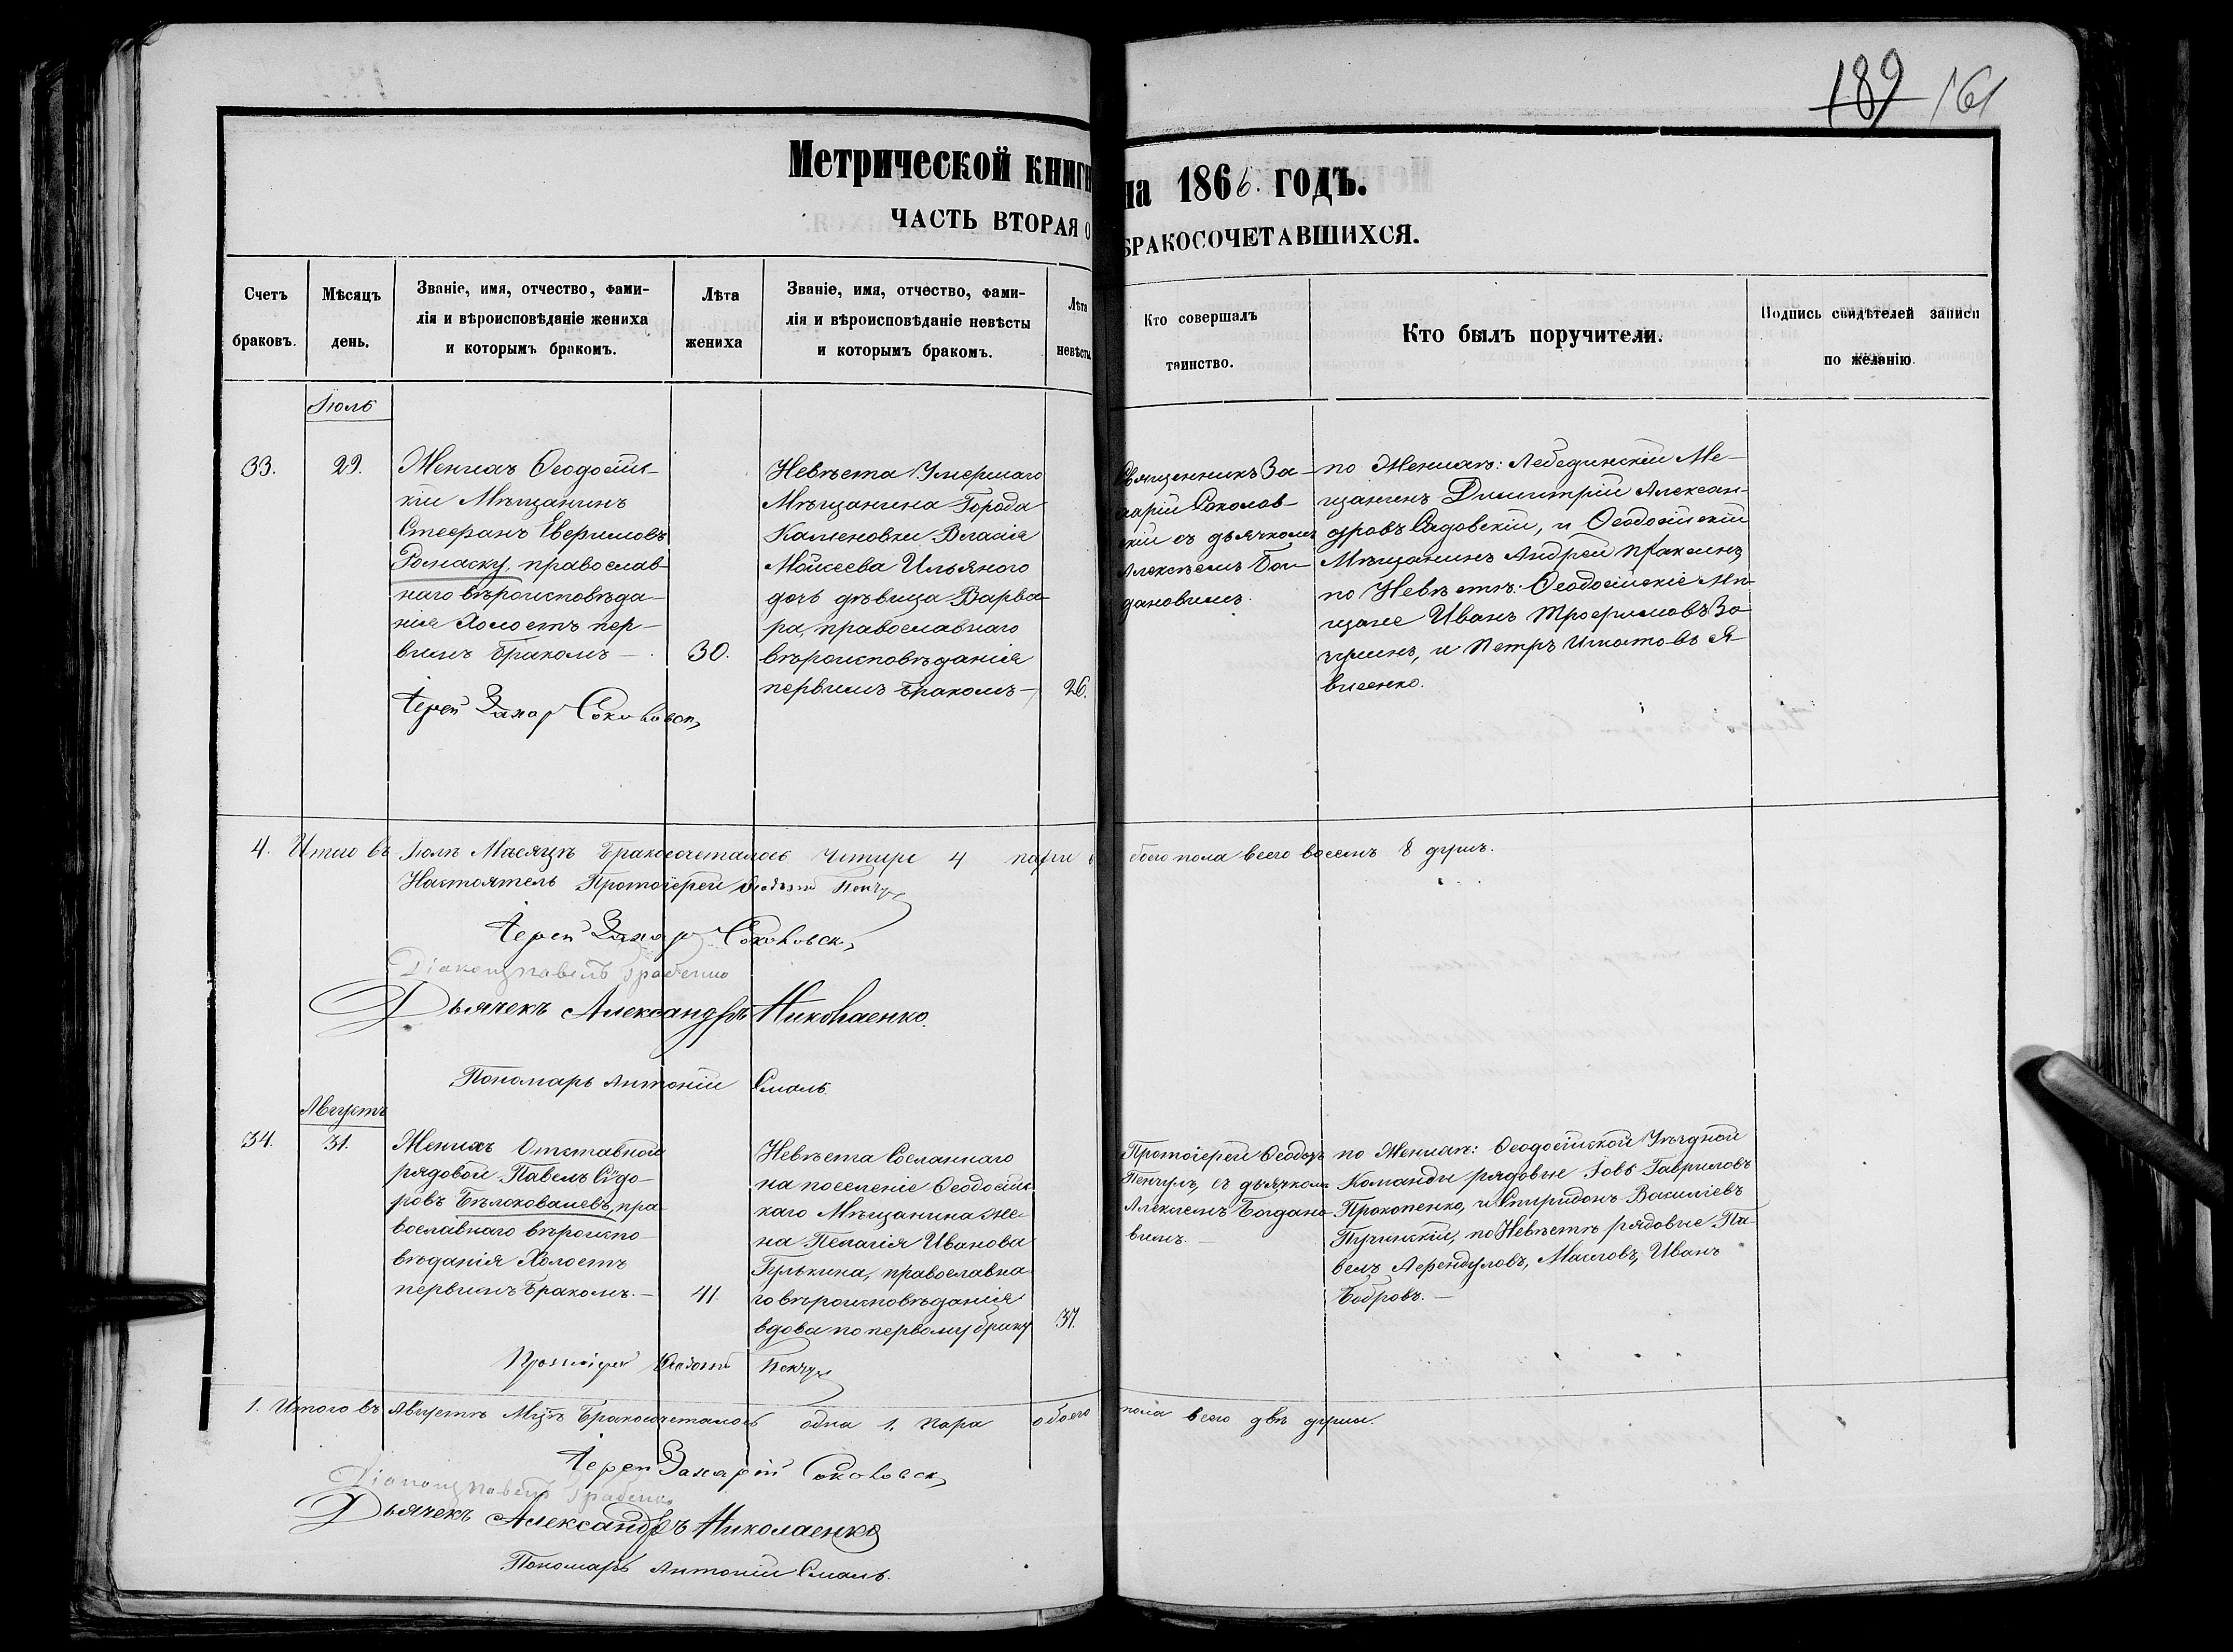 189 161
Метрической книги на 1866. годъ.
ЧАСТЬ ВТОРАЯ о БРАКОСОЧЕТАВШИХСЯ.
Счетъ
браковъ.
Мѣсяцъ
день.
Званіе, имя, отчество, фами-
лія и вѣроисповѣданіе жениха
и которымъ бракомъ.
Лѣта
жениха
Званіе, имя, отчество, фами-
лія и вѣроисповѣданіе невѣсты
и которымъ бракомъ.
Лѣта
невѣсты
Кто совершалъ
таинство.
Кто былъ поручители.
Подпись свидѣтелей записи
по желанію.
Іюль
33.
29.
Женихъ Ѳеодосійс-
кій Мѣщанинъ
Стефанъ Евфимовъ
Ромаску, православ-
наго вѣроисповѣда-
нія Холостъ пер-
вымъ бракомъ —
30.
Іерей Захар Соколовск
Невѣста Умершаго
Мѣщанина Города
Каменовки Власія
Мойсеева Ильяного
дочь дѣвица Варва-
ра, православнаго
вѣроисповѣданія
первымъ бракомъ —
26.
Священникъ За-
харій Соколов-
скій съ дьячкомъ
Алексѣемъ Бог-
дановимъ.
по Женихѣ: Лебединскій Ме-
щанинъ Димитрій Алексан-
дровъ Садовскій, и Ѳеодосійскій
Мѣщанинъ Андрей
по Невѣстѣ: Ѳеодосійскіе Мѣ-
щане Иванъ Трофимовъ За-
и Петръ Игнатовъ Я-
4. Итого въ Іюлѣ Мѣсяцѣ Бракосочеталось Четыре 4 пари обоего пола всего восемъ 8 душъ.
Настоятель Протоіерей Ѳеодосій Пенчул
Іерей Захар Соколовск
Діаконъ Павелъ Грабенко
Дьячекъ Александръ Николаенко.
Пономарь Антоній Смаль.
Августъ
34.
31.
Женихъ Отставной
рядовой Павелъ Сидо-
ровъ Бѣлоковалевъ, пра-
вославнаго вѣроиспо-
вѣданія Холостъ
первымъ Бракомъ. —
41.
Невѣста Сосланнаго
на поселеніе Ѳеодосійс-
каго Мѣщанина же-
на Пелагія Иванова
Гулькина, православна-
го вѣроисповѣданія
вдова по первому браку
37.
Протоіерей Ѳеодосій
Пенчулъ, съ дьячкомъ
Алексѣемъ Богдано-
вимъ. —
по Женихѣ: Ѳеодосійской Уѣздной
Команды рядовые Іовъ Гавриловъ
Прокопенко, и Спиридонъ Василіевъ
по Невѣстѣ рядовые Па-
велъ Масловъ, Иванъ
Бобровъ. —
Протоіерей Ѳеодосій Пенчул
1. Итого въ Августѣ Мцѣ Бракосочеталось одна 1. пара обоего пола всего двѣ души.
Іерей Захарій Соколовск
Діаконъ Павелъ Грабенко
Дьячекъ Александръ Николаенко
Пономарь Антоній Смаль.